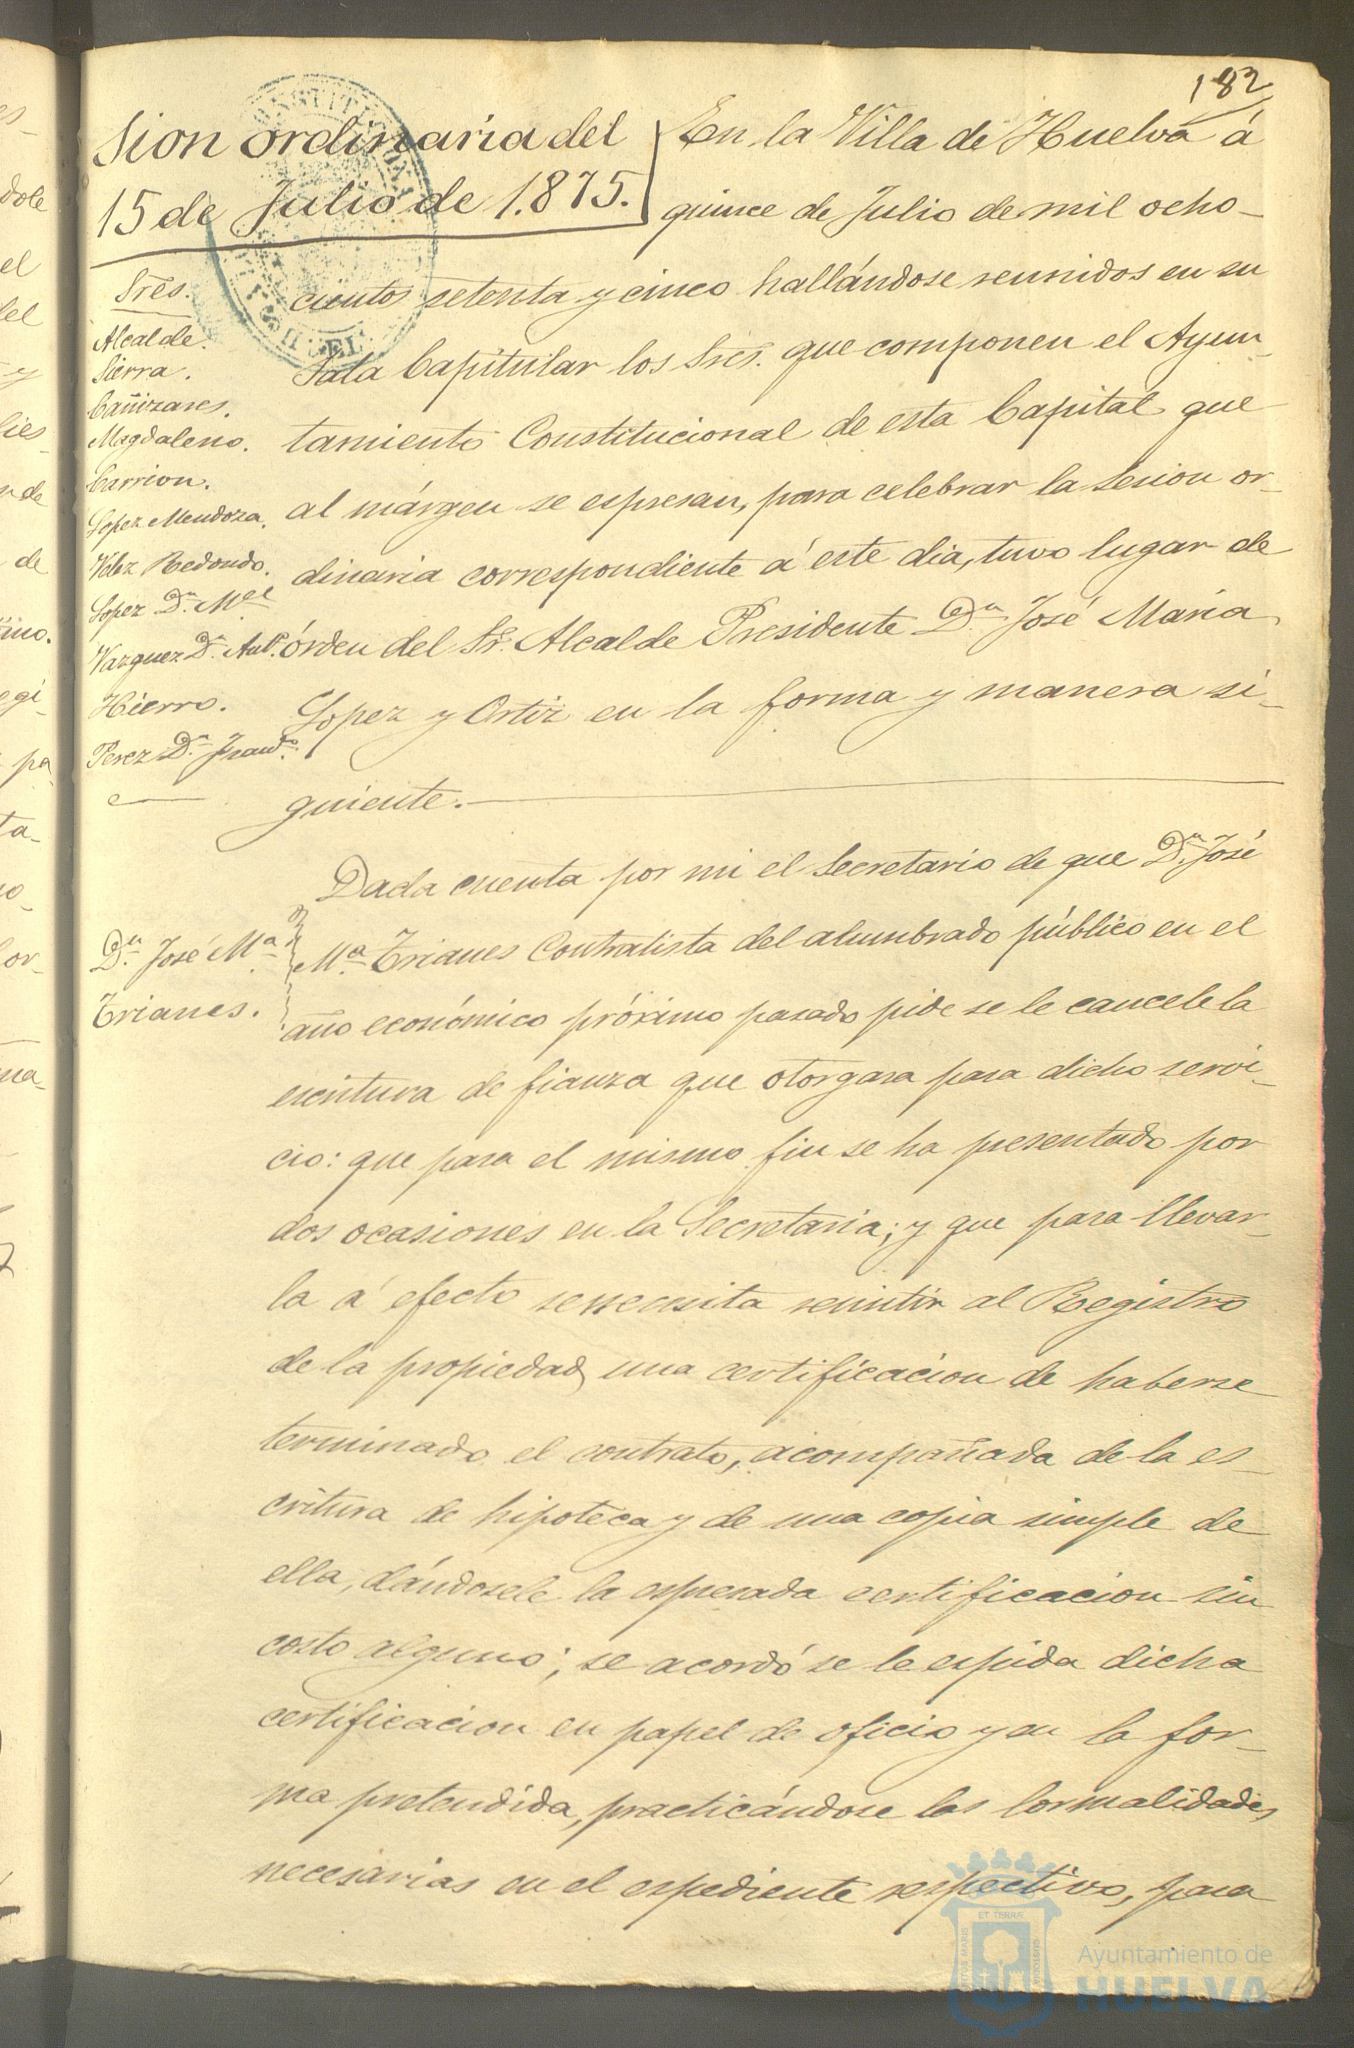 182
Sion ordinaria del
15 de Julio de 1.875.
En la Villa de Huelva á
quince de Julio de mil ocho-
cientos setenta y cinco hallándose reunidos en su
Sala Capitular los Sres. que componen el Ayun-
tamiento Constitucional de esta Capital que
al márgen se espresan, para celebrar la Sesion or-
dinaria correspondiente á este dia, tuvo lugar de
órden del Sr. Alcalde Presidente Dn. José Maria
Lopez y Ortiz en la forma y manera si-
guiente.
Sres.
Alcalde.
Sierra.
Cañizares.
Magdaleno.
Carrion.
Lopez Mendoza.
Velez Redondo.
Lopez Dn. Mel
Vazquez Dn. Anto.
Hierro.
Perez Dn. Frando.
Dn. José Ma.
Trianes.
Dada cuenta por mi el Secretario de que Dn. José
Ma. Trianes Contratista del alumbrado público en el
año económico próximo pasado pide se le cancele la
escritura de fianza que otorgara para dicho servi-
cio: que para el mismo fin se ha presentado por
dos ocasiones en la Secretaria; y que para llevar-
la á efecto se necesita remitir al Registro
de la propiedad una certificacion de haberse
terminado el contrato, acompañada de la es-
critura de hipoteca y de una copia simple de
ella, dándosele la espresada certificacion sin
costo alguno; se acordó se le espida dicha
certificacion en papel de oficio y en la for-
ma pretendida, practicándose las formalidades
necesarias en el espediente respectivo, para
Ayuntamiento de
HUELVA